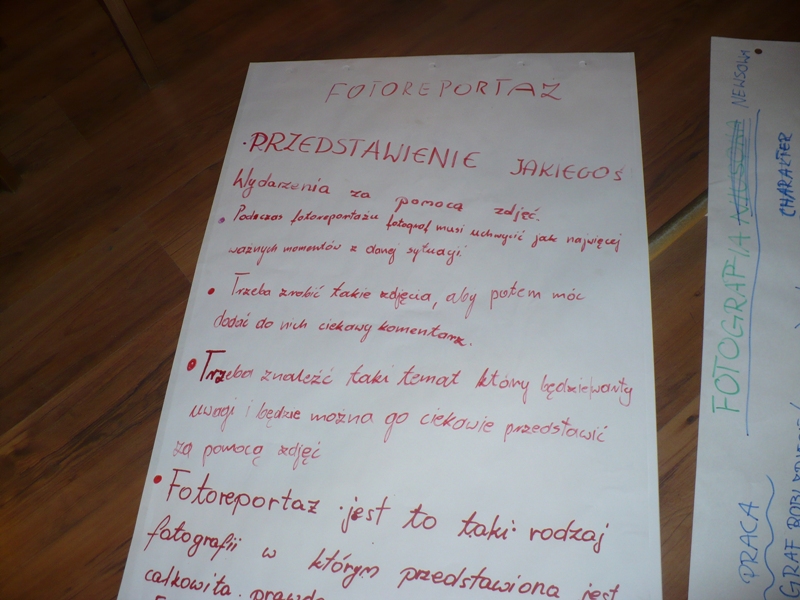 FOTOREPORTAŻ
• PRZEDSTAWIENIE JAKIEGOŚ
Wydarzenia za pomocą zdjęć.
• Podczas fotoreportażu fotograf musi uchwycić jak najwięcej
ważnych momentów z danej sytuacji.
• Trzeba zrobić takie zdjęcia, aby potem móc
dodać do nich ciekawy komentarz.
• Trzeba znaleźć taki temat który będzie warty
uwagi i będzie można go ciekawie przedstawić
za pomocą zdjęć
• Fotoreportaz jest to taki rodzaj
fotografii w którym przedstawiona jest
całkowita prawda
FOTOGRAFIA NEWSOWA
CHARAKTER
PRACA